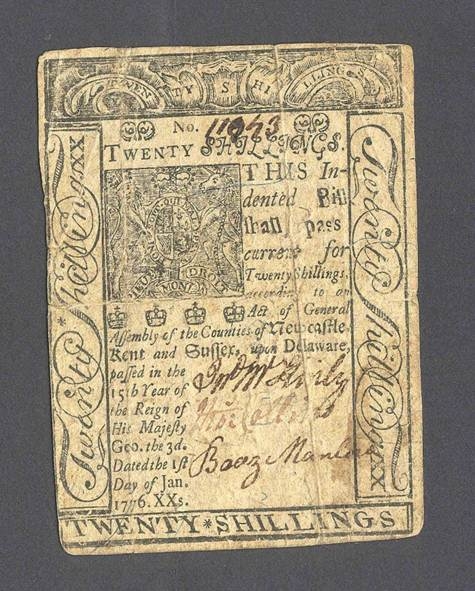 TWEN TY S HI LLINGS
No. 11043
TWENTY SHILLINGS.
THIS In-
dented Bill
shall pass
current for
Twenty Shillings,
according to an
Act of General
Assembly of the Counties of Newcastle,
Kent and Sussex, upon Delaware,
passed in the
15th Year of
the Reign of
His Majesty
Geo. the 3d.
Dated the 1st
Day of Jan.
1776. XXs.
Boaz Manlove
Twenty * Shilling XX
Twenty Shilling XX
TWENTY * SHILLINGS